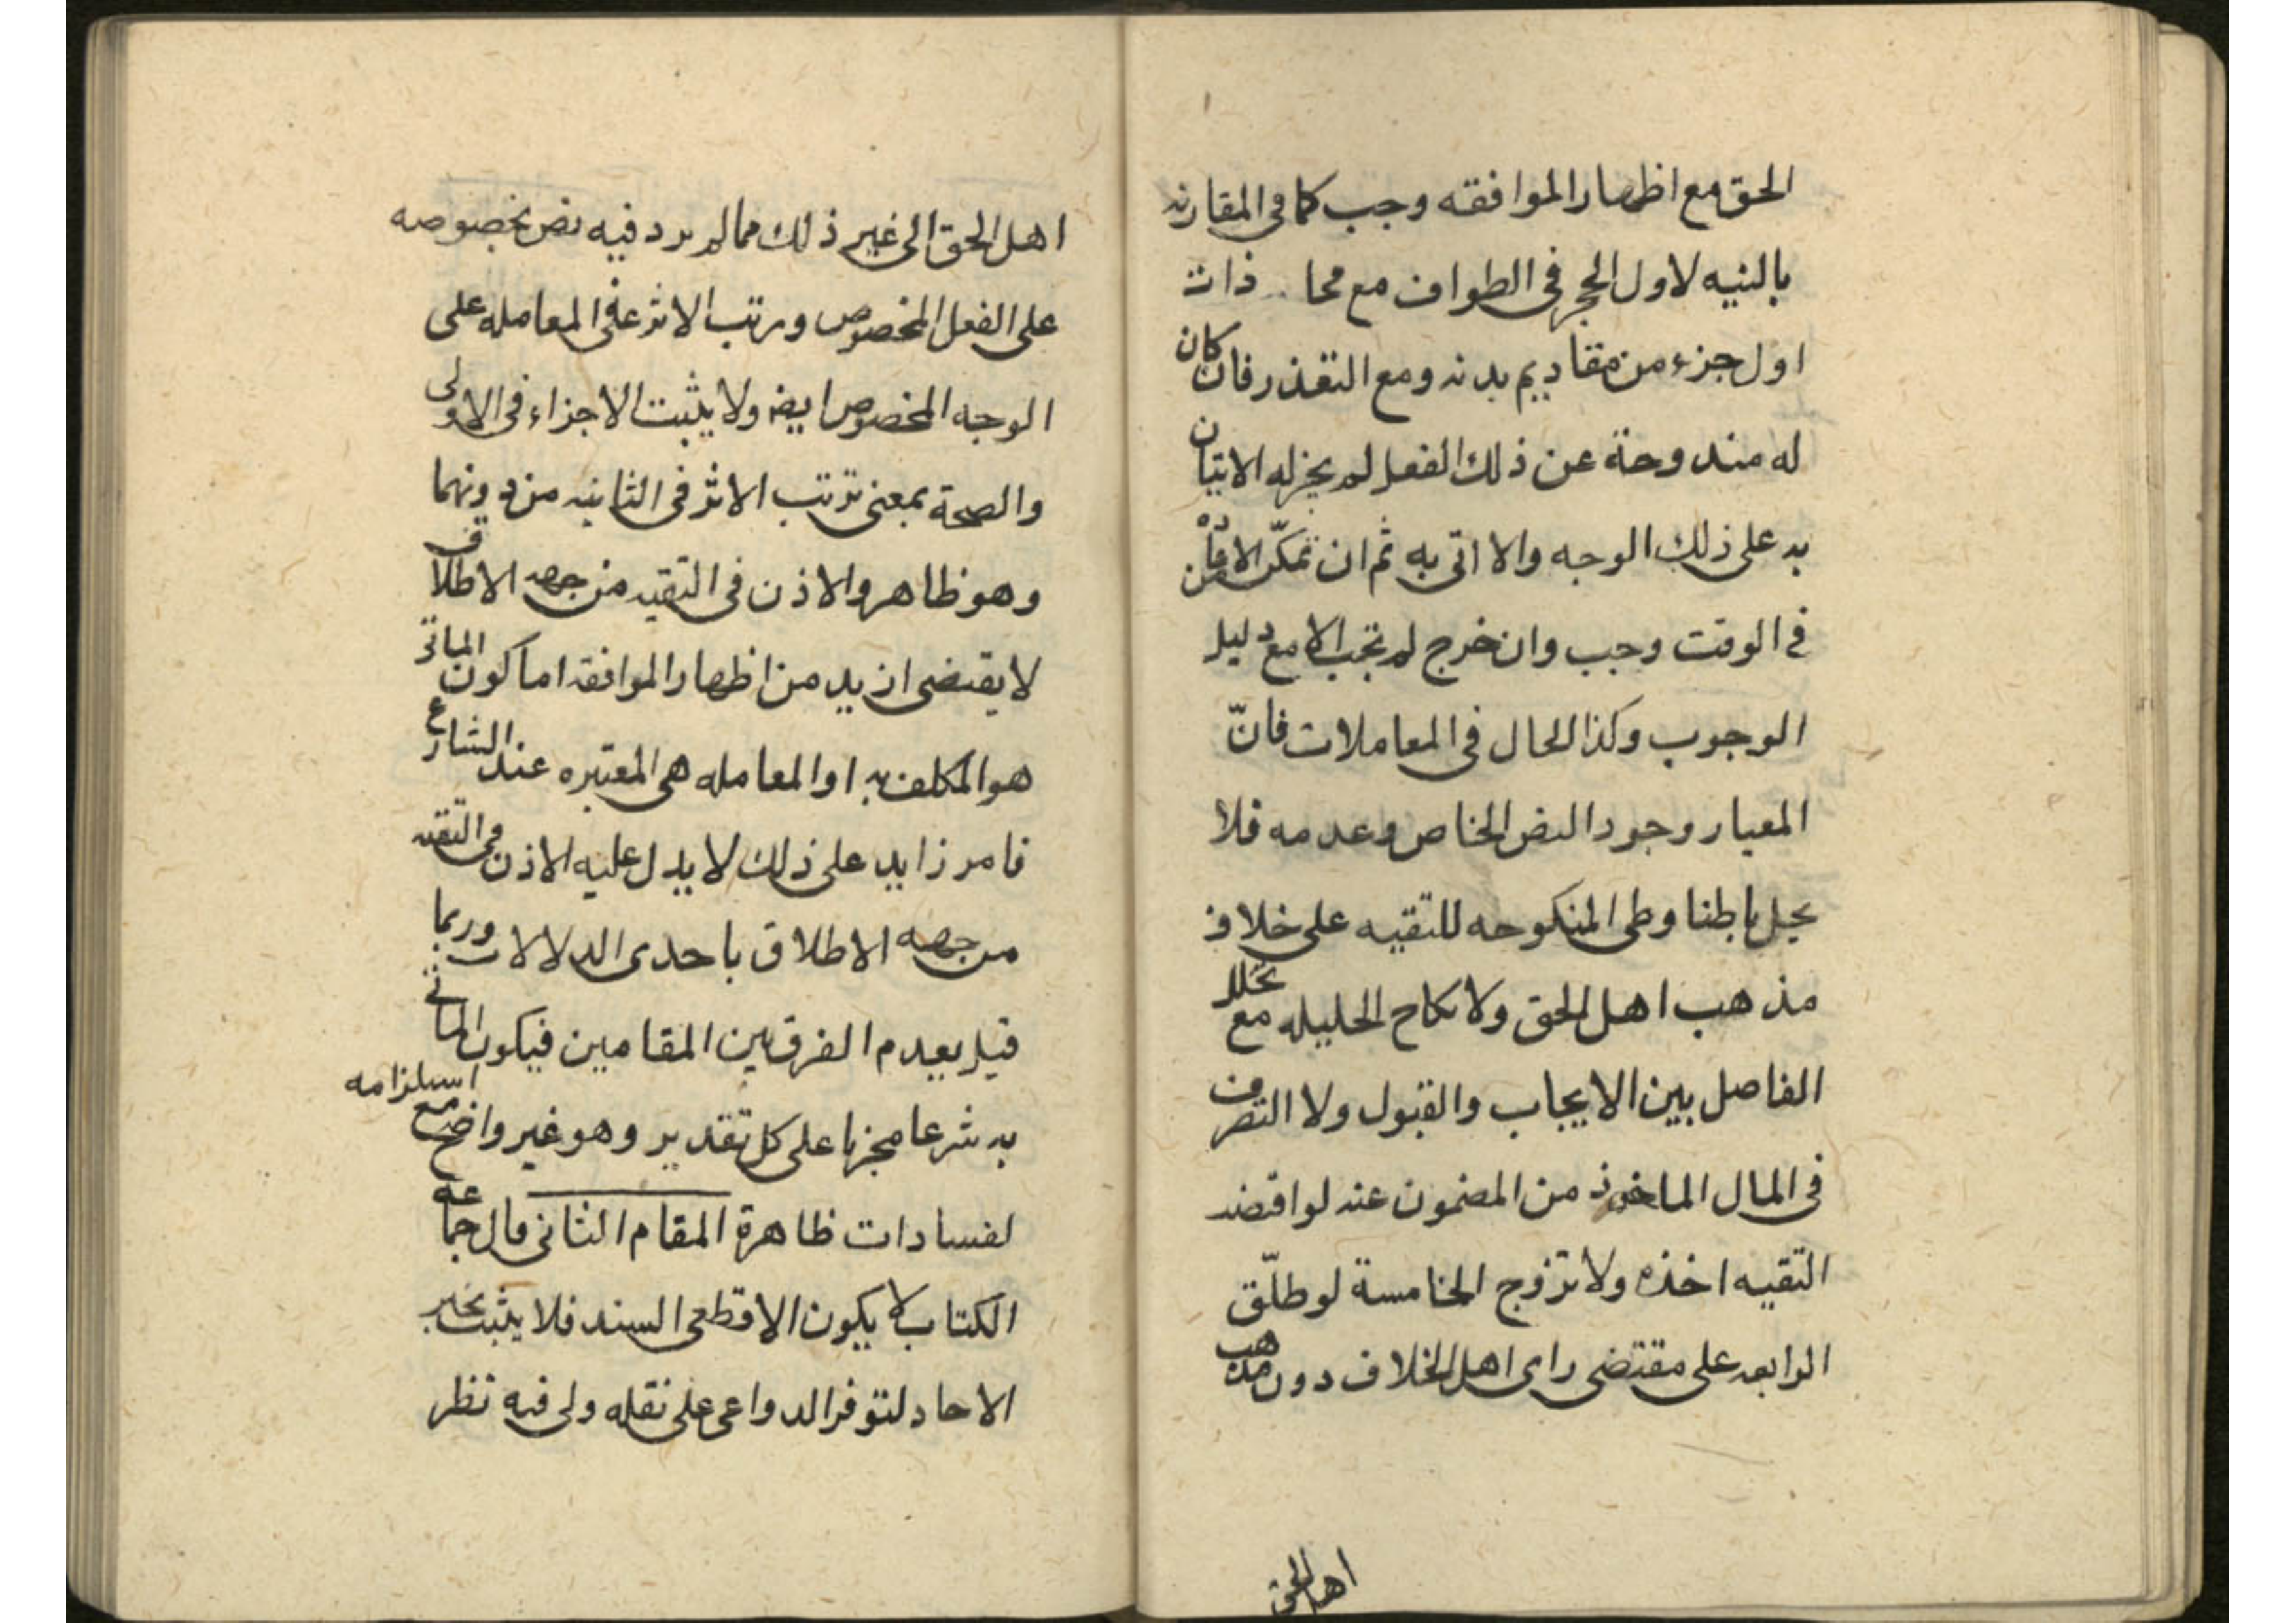 الحق مع اظهار الموافقه وجب كما في المقارنه
بالنيه لاول الحجر في الطواف مع محا ذات
اول جزء من مقاديم بدنه ومع التعذر فان كان
له مندوحة عن ذلك الفعل لم يجزله الاتيان
به على ذلك الوجه والا اتى به ثم ان تمكّن الاعاده
في الوقت وجب وان خرج لم تجب الا مع دليل
الوجوب وكذا الحال في المعاملات فانّ
المعيار وجود النص الخاص وعدمه فلا
يحل باطنا وطى المنكوحه للتقيه على خلاف
مذهب اهل الحق ولا نكاح الحليله مع تخلل
الفاصل بين الايجاب والقبول ولا التصرف
في المال الماخوذ من المضمون عنه لو اقتضت
التقيه اخذه ولا تزوج الخامسة لو طلّق
الرابعه على مقتضى راى اهل الخلاف دون مذهب
اهل الحق
اهل الحق الى غير ذلك مما لم يرد فيه نص بخصوصه
على الفعل المخصوص ورتب الاثر في المعامله على
الوجه المخصوص ايضه ولا يثبت الاجزاء في الاولى
والصحة بمعنى ترتب الاثر في الثانيه من دونهما
وهو ظاهر والاذن في التقيه من جهه الاطلاق
لا يقتضى ازيد من اظهار الموافقه اما كون الماتى
هو المكلف به او المعامله هي المعتبره عند الشارع
فامر زايد على ذلك لا يدل عليه الاذن في التقيه
من جهه الاطلاق باحدى الدلالات وربما
قيل بعدم الفرق بين المقامين فيكون الماتي
به شرعا مجزيا على كل تقدير وهو غير واضح مع استلزامه
لفسادات ظاهرة المقام الثاني قال جماعه
الكتاب لا يكون الا قطعى السند فلا يثبت بخبر
الاحاد لتوفر الدواعى على نقله ولى فيه نظر